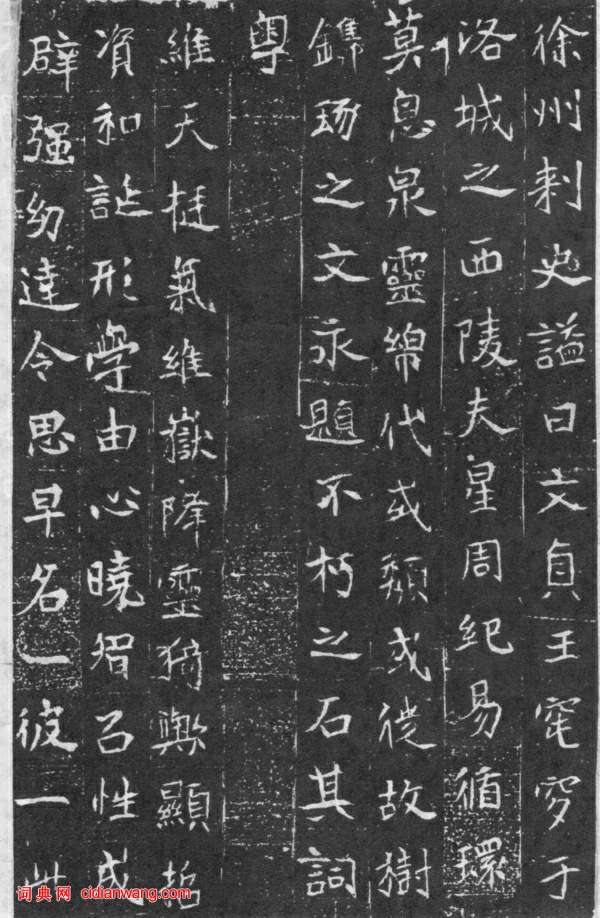 徐州刺史謚曰文貞王窀穸于
洛城之西陵夫星周紀易循環
莫息泉靈綿代或頹或徙故樹
鐫琢之文永題不朽之石其詞
粵
維天挺氣維嶽降靈猗歟顯哲
資和誕形學由心曉智㠯性成
辟强幼達令思早名一彼一此
词典网 cidianwang.com